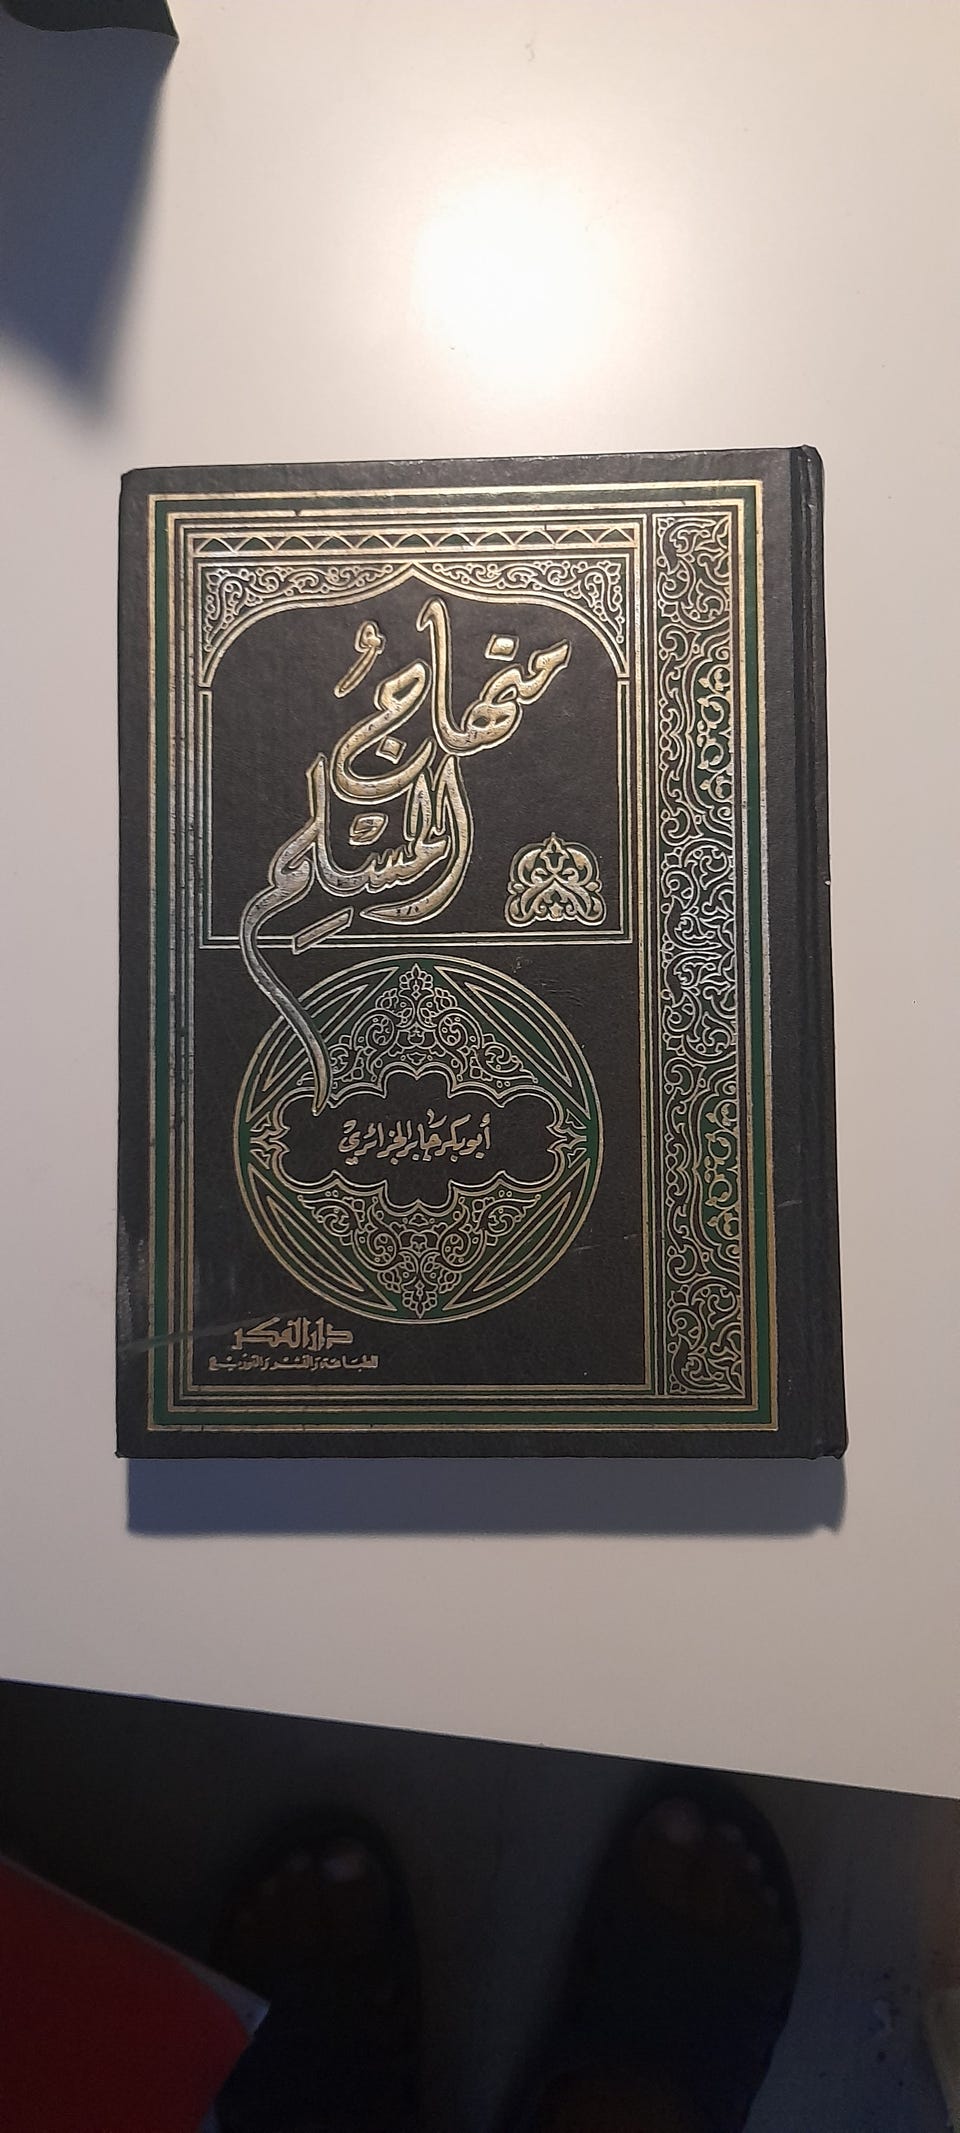 منهاجُ
المسْلِم
أبوبكر جَابر الجزائريْ
دار الفكر
للطبَاعَة وَالنشْر وَالتوزيْع